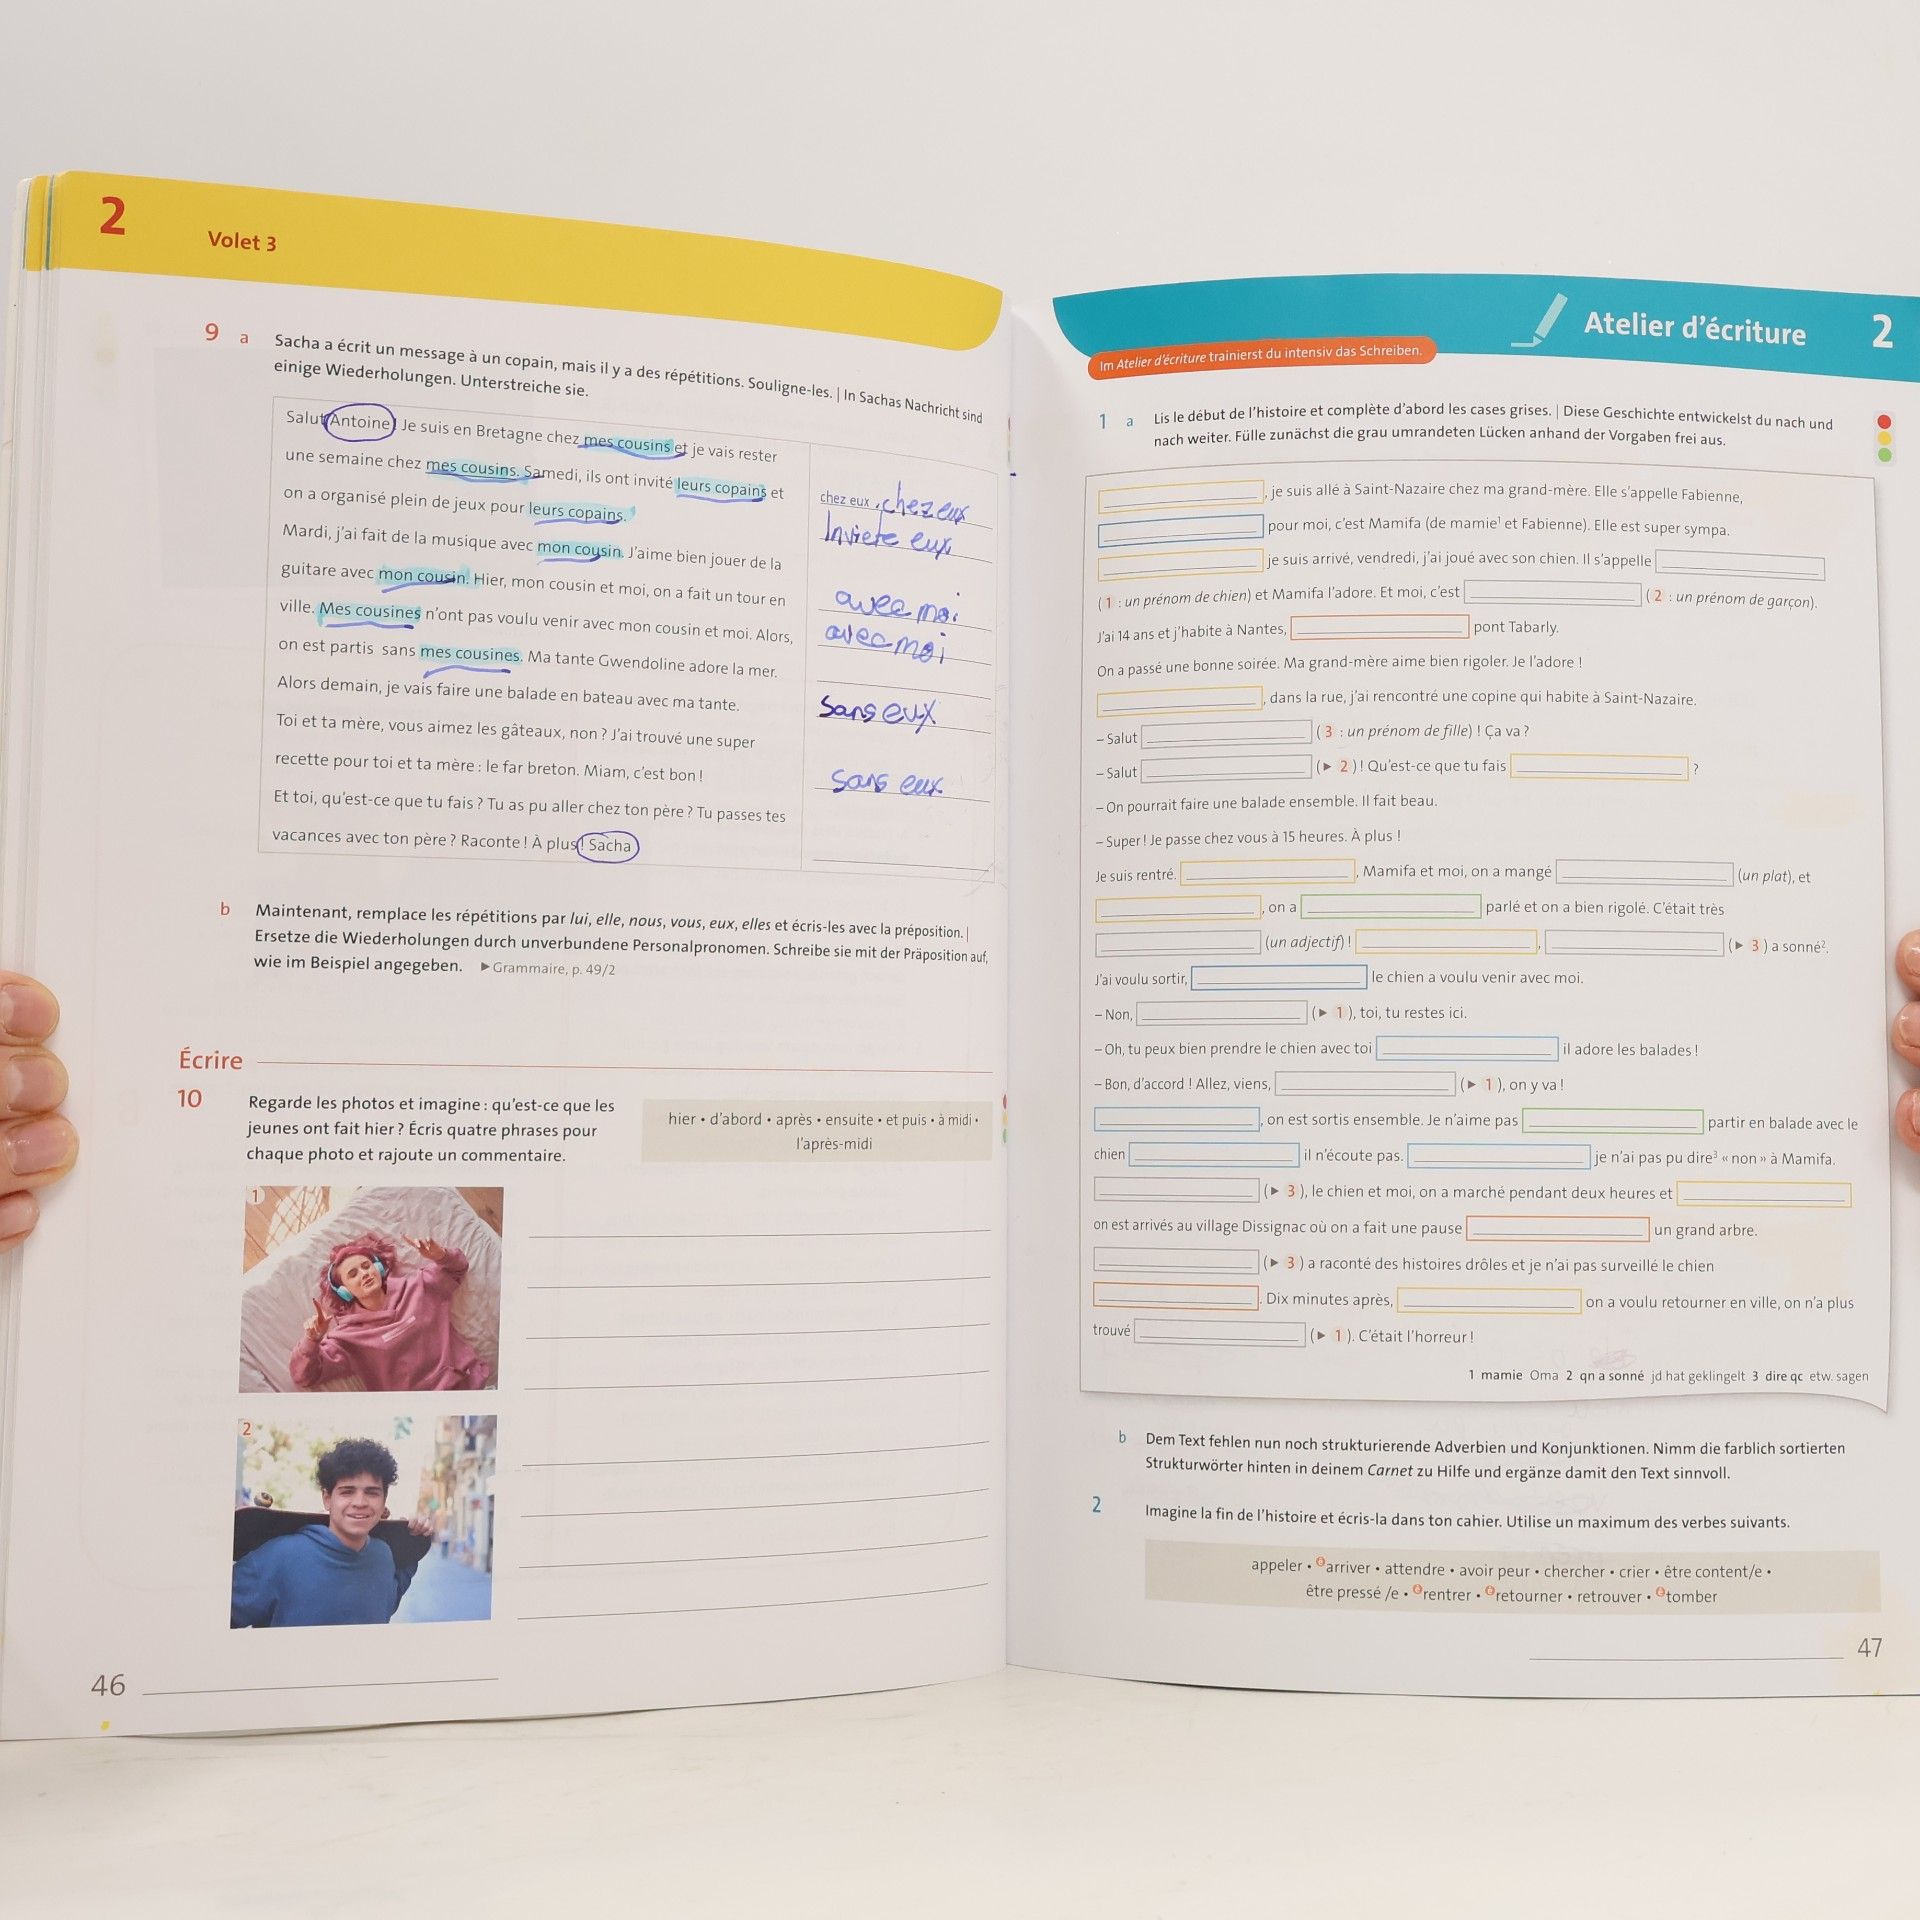 2
Volet 3
9 a Sacha a écrit un message à un copain, mais il y a des répétitions. Souligne-les. | In Sachas Nachricht sind
einige Wiederholungen. Unterstreiche sie.
Salut Antoine! Je suis en Bretagne chez mes cousins et je vais rester
une semaine chez mes cousins. Samedi, ils ont invité leurs copains et
on a organisé plein de jeux pour leurs copains.
Mardi, j'ai fait de la musique avec mon cousin. J'aime bien jouer de la
guitare avec mon cousin. Hier, mon cousin et moi, on a fait un tour en
ville. Mes cousines n'ont pas voulu venir avec mon cousin et moi. Alors,
on est partis sans mes cousines. Ma tante Gwendoline adore la mer.
Alors demain, je vais faire une balade en bateau avec ma tante.
Toi et ta mère, vous aimez les gâteaux, non ? J'ai trouvé une super
recette pour toi et ta mère : le far breton. Miam, c'est bon !
Et toi, qu'est-ce que tu fais ? Tu as pu aller chez ton père ? Tu passes tes
vacances avec ton père ? Raconte ! À plus ! Sacha
chez eux, chez eux
Inviete eux
avec moi
avec moi
Sans eux
sans eux
b Maintenant, remplace les répétitions par lui, elle, nous, vous, eux, elles et écris-les avec la préposition. |
Ersetze die Wiederholungen durch unverbundene Personalpronomen. Schreibe sie mit der Präposition auf,
wie im Beispiel angegeben. ▶ Grammaire, p. 49/2
Écrire
10 Regarde les photos et imagine : qu'est-ce que les
jeunes ont fait hier ? Écris quatre phrases pour
chaque photo et rajoute un commentaire.
hier • d'abord • après • ensuite • et puis • à midi •
l'après-midi
1
2
46
Atelier d'écriture 2
Im Atelier d'écriture trainierst du intensiv das Schreiben.
1 a Lis le début de l'histoire et complète d'abord les cases grises. | Diese Geschichte entwickelst du nach und
nach weiter. Fülle zunächst die grau umrandeten Lücken anhand der Vorgaben frei aus.
, je suis allé à Saint-Nazaire chez ma grand-mère. Elle s'appelle Fabienne,
pour moi, c'est Mamifa (de mamie1 et Fabienne). Elle est super sympa.
je suis arrivé, vendredi, j'ai joué avec son chien. Il s'appelle
(1 : un prénom de chien) et Mamifa l'adore. Et moi, c'est (2 : un prénom de garçon).
J'ai 14 ans et j'habite à Nantes, pont Tabarly.
On a passé une bonne soirée. Ma grand-mère aime bien rigoler. Je l'adore !
, dans la rue, j'ai rencontré une copine qui habite à Saint-Nazaire.
– Salut (3 : un prénom de fille) ! Ça va ?
– Salut (▶ 2) ! Qu'est-ce que tu fais ?
– On pourrait faire une balade ensemble. Il fait beau.
– Super ! Je passe chez vous à 15 heures. À plus !
Je suis rentré. , Mamifa et moi, on a mangé (un plat), et
, on a parlé et on a bien rigolé. C'était très
(un adjectif) ! , (▶ 3) a sonné2.
J'ai voulu sortir, le chien a voulu venir avec moi.
– Non, (▶ 1), toi, tu restes ici.
– Oh, tu peux bien prendre le chien avec toi il adore les balades !
– Bon, d'accord ! Allez, viens, (▶ 1), on y va !
, on est sortis ensemble. Je n'aime pas partir en balade avec le
chien il n'écoute pas. je n'ai pas pu dire3 « non » à Mamifa.
(▶ 3), le chien et moi, on a marché pendant deux heures et
on est arrivés au village Dissignac où on a fait une pause un grand arbre.
(▶ 3) a raconté des histoires drôles et je n'ai pas surveillé le chien
. Dix minutes après, on a voulu retourner en ville, on n'a plus
trouvé (▶ 1). C'était l'horreur !
1 mamie Oma 2 qn a sonné jd hat geklingelt 3 dire qc etw. sagen
b Dem Text fehlen nun noch strukturierende Adverbien und Konjunktionen. Nimm die farblich sortierten
Strukturwörter hinten in deinem Carnet zu Hilfe und ergänze damit den Text sinnvoll.
2 Imagine la fin de l'histoire et écris-la dans ton cahier. Utilise un maximum des verbes suivants.
appeler • ê arriver • attendre • avoir peur • chercher • crier • être content/e •
être pressé/e • ê rentrer • ê retourner • retrouver • ê tomber
47